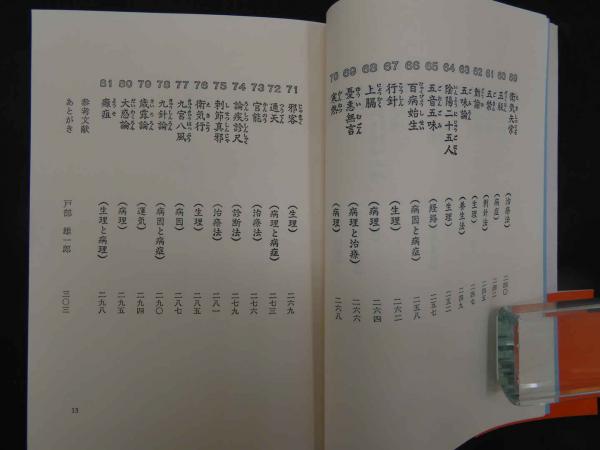 59 衛気失常 (治療法) 二四〇
60 玉版 (病症) 二四二
61 五禁 (刺針法) 二四五
62 動輸 (生理) 二四七
63 五味論 (養生法) 二四九
64 陰陽二十五人 (生理) 二五二
65 五音五味 (経絡) 二五七
66 百病始生 (病因と病症) 二五八
67 行針 (生理) 二六二
68 上膈 (病理) 二六四
69 憂恚無言 (病理と治療)
70 寒熱 (病理) 二六八
71 邪客 (生理) 二六九
72 通天 (病理と病症) 二七三
73 官能 (治療法) 二七六
74 論疾診尺 (診断法) 二七九
75 刺節真邪 (治療法) 二八一
76 衛気行 (生理) 二八五
77 九宮八風 (病因) 二八七
78 九針論 (病因と病症) 二九〇
79 歳露論 (運気) 二九四
80 大惑論 (病理) 二九五
81 癰疽 (生理と病理) 二九八
参考文献
あとがき 戸部 雄一郎 三〇三
13